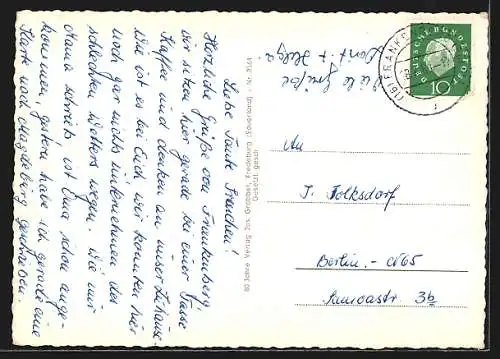 Liebe Tante Frenchen!
Herzliche Grüße von Frankenberg,
wir sitzen hier gerade bei einer Tasse
Kaffee und denken an unser Zuhause.
Wie ist es bei Euch wir konnten hier
noch gar nichts unternehmen des
schlechten Wetters wegen. Wie mir
Mama schreibt ist Elma schon ange-
kommen, gestern habe ich gerade eine
Karte nach Magdeburg geschrieben.
Viele Grüße
Horst + Helga
60 Jahre Verlag Jos. Grobbel, Fredeburg (Sauerland) - Nr. 8164
Gesetzl. gesch.
(16) FRANK
DEUTSCHE BUNDESPOST
10
An
J. Folksdorf
Berlin. - N65
Samoastr 3b